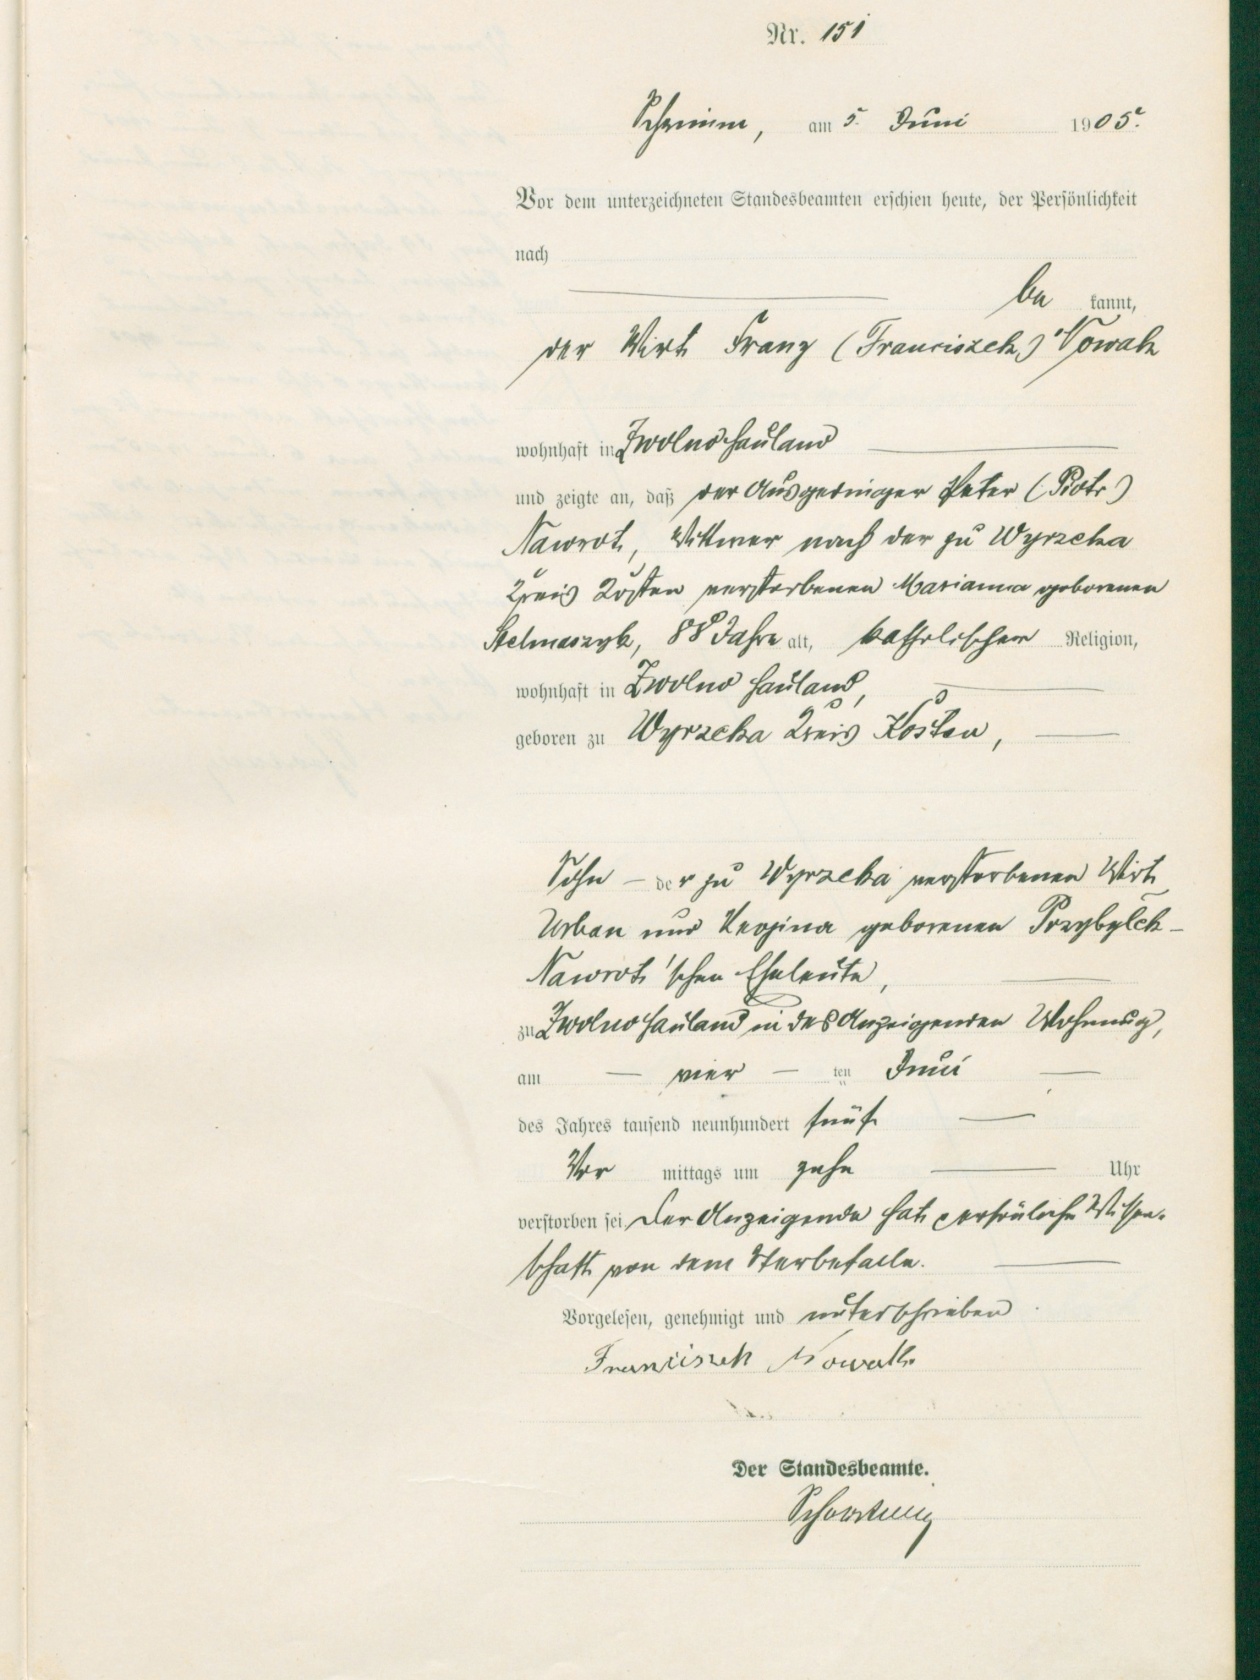 Nr. 151
Schrimm, am 5. Juni 1905.
Vor dem unterzeichneten Standesbeamten erschien heute, der Persönlichkeit
nach
be kannt,
der Wirt Franz (Franciszek) Nowak
wohnhaft in Zwolno Hauland
und zeigte an, daß der Ausgedinger Peter (Piotr)
Nawrot, Wittwer nach der zu Wyrzeka
Kreis Kosten verstorbenen Marianna geborenen
Stelmaszyk, 88 Jahre alt, katholischer Religion,
wohnhaft in Zwolno Hauland,
geboren zu Wyrzeka Kreis Kosten,
Sohn – der zu Wyrzeka verstorbenen Wirt
Urban und Regina geborenen Przybylek-
Nawrot'schen Eheleute,
zu Zwolno Hauland in des Anzeigenden Wohnung,
am – vier – ten Juni
des Jahres tausend neunhundert fünf
Vor mittags um zehn Uhr
verstorben sei. Der Anzeigende hat persönliche Wissen-
schaft von dem Sterbefalle.
Vorgelesen, genehmigt und unterschrieben
Franciszek Nowak
Der Standesbeamte.